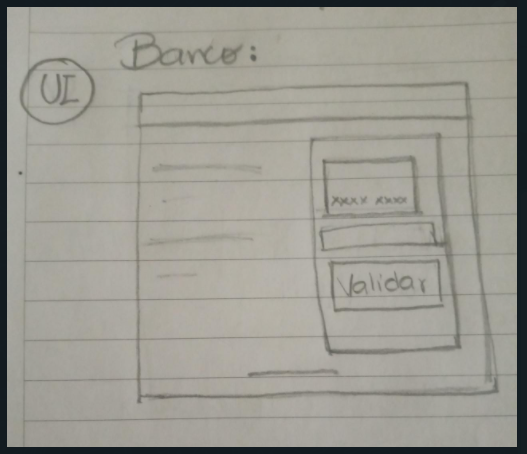 Banco:
UI
xxxx xxxx
Validar